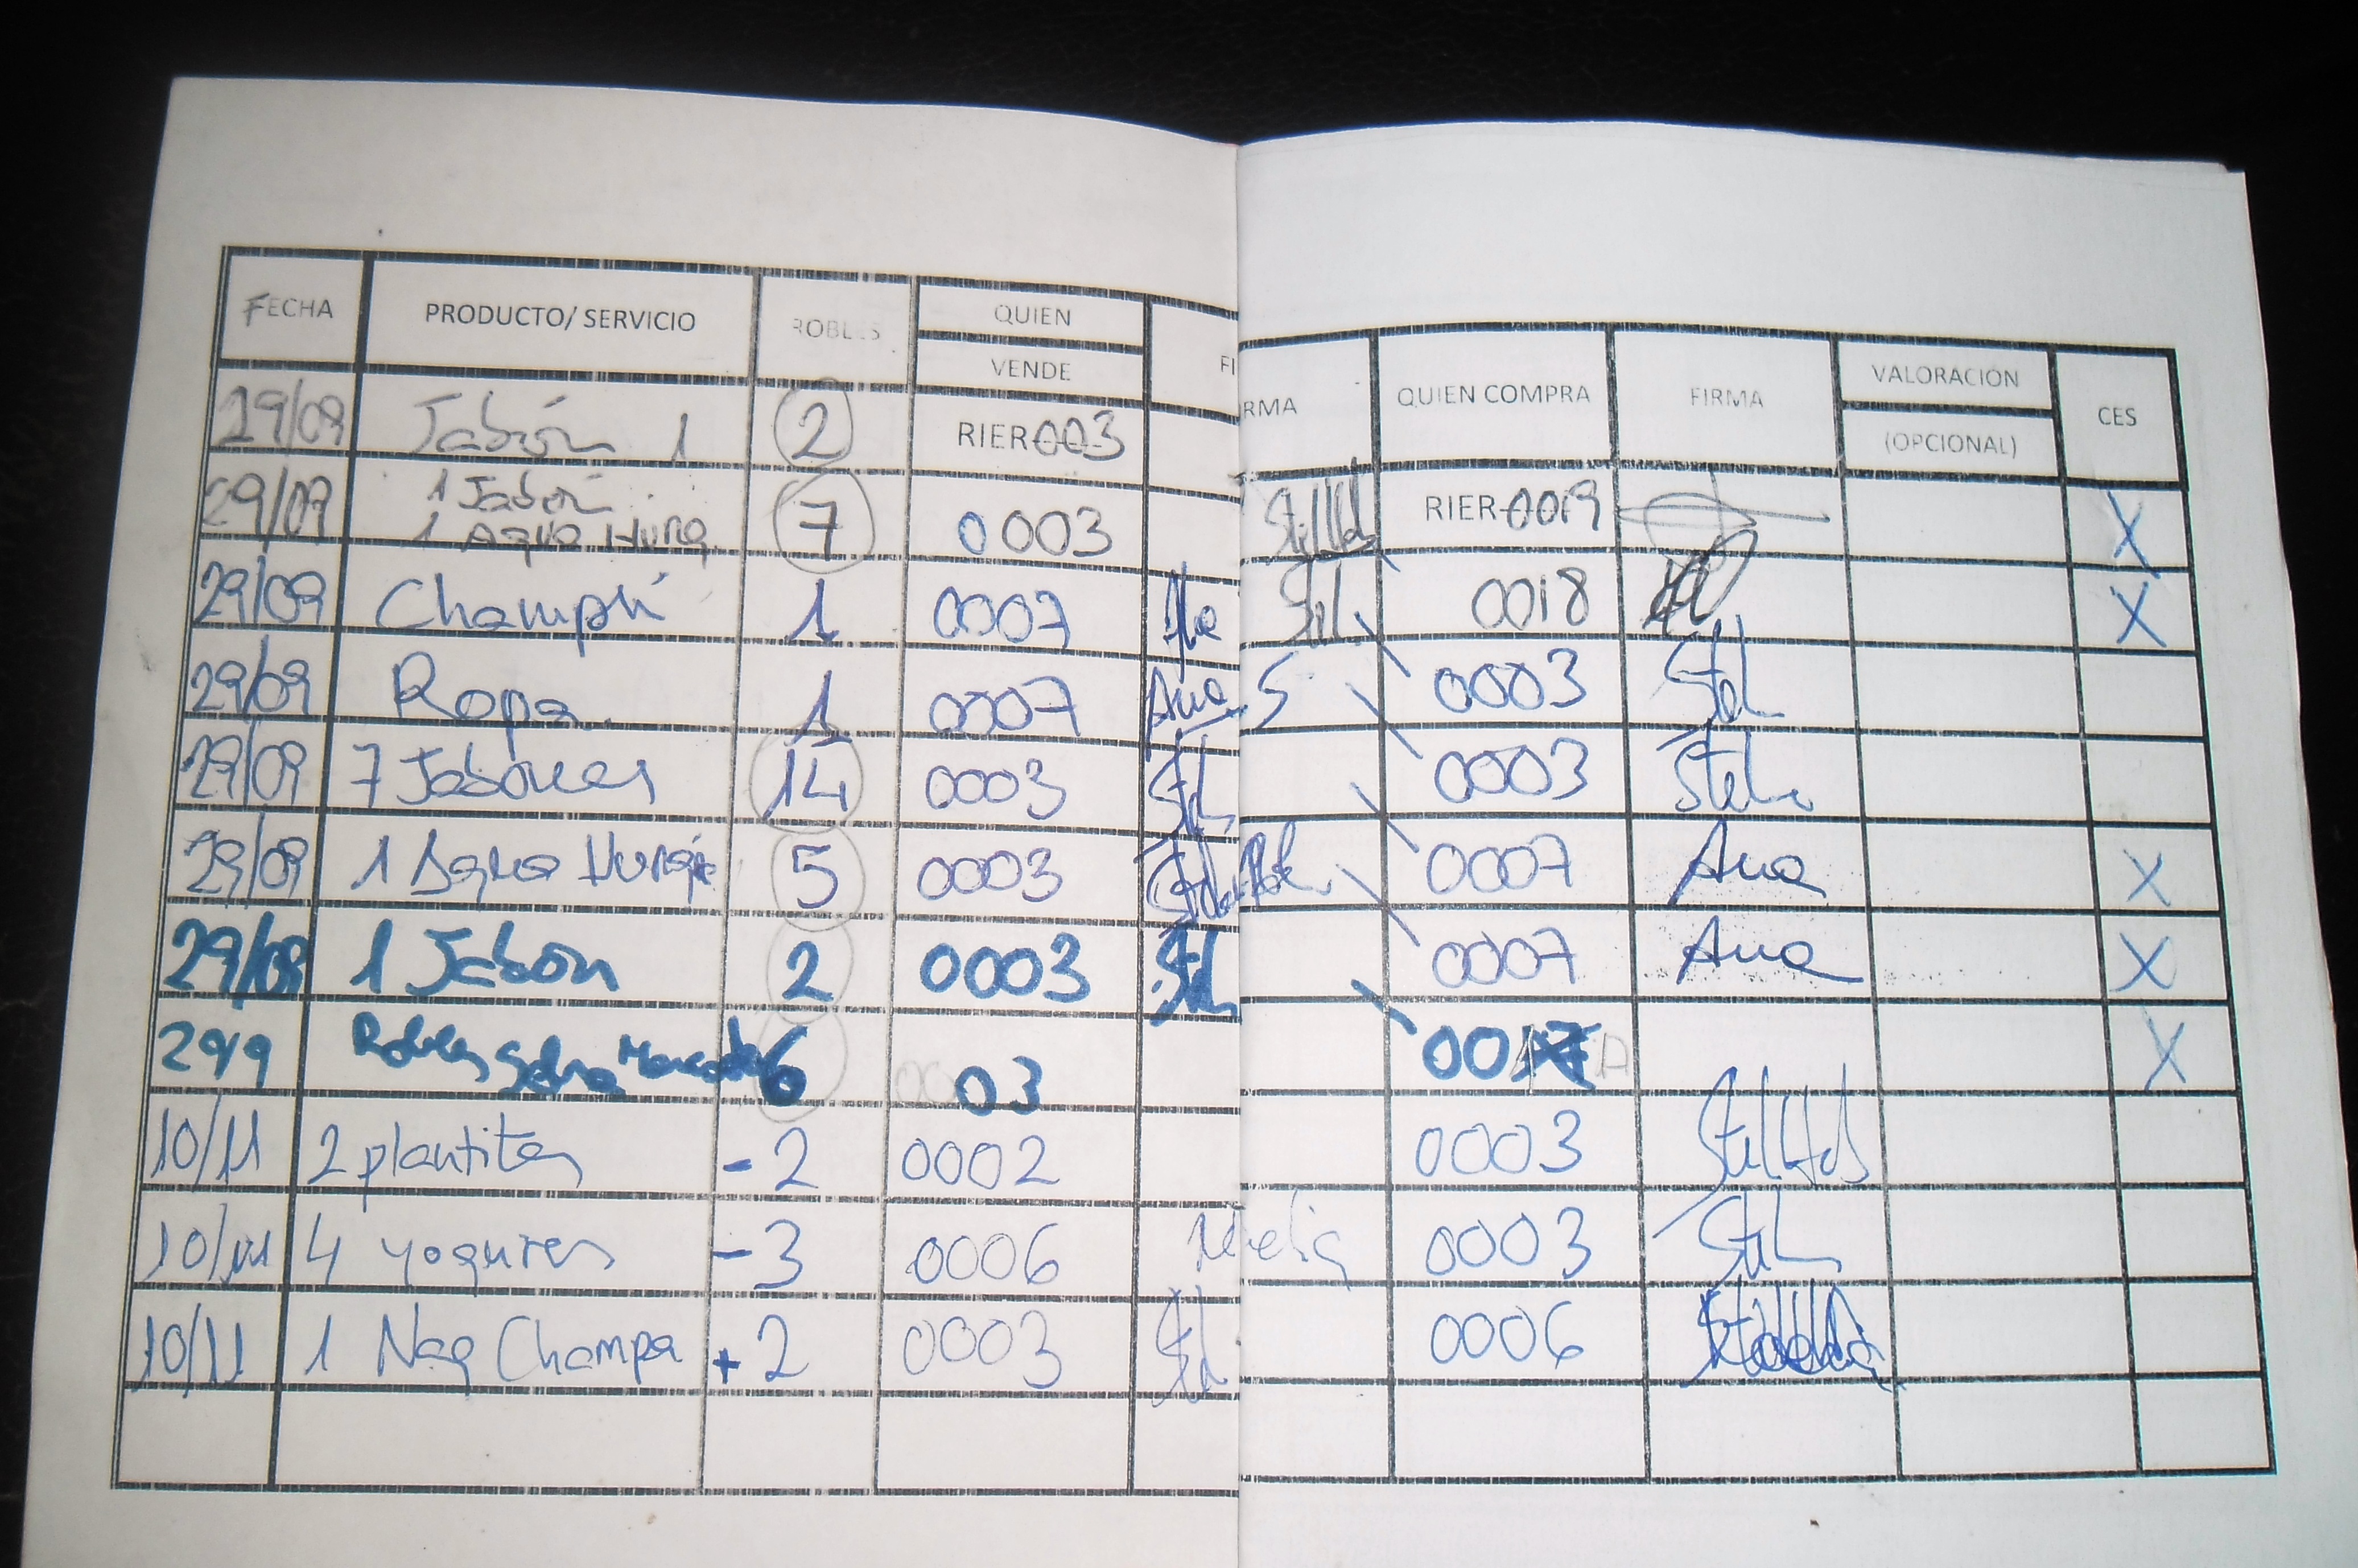 FECHA PRODUCTO/ SERVICIO ROBLES QUIEN VENDE FIRMA QUIEN COMPRA FIRMA VALORACION (OPCIONAL) CES
29/09 Jabón 1 2 RIER-003 RIER-0019 X
29/09 1 Jabón 7 0003 0018 X
1 Agua Hung.
29/09 Champú 1 0007 Ana 0003 Stel
29/09 Ropa 1 0007 Ana S 0003 Stela
29/09 7 Jabones 14 0003 Stel 0007 Ana X
29/09 1 Agua 5 0003 0007 Ana X
29/09 1 Jabón 2 0003 Stel X
29/9 Robles Sobra Mercado 6 0003
10/11 2 plantitas -2 0002 0003
10/11 4 yogures -3 0006 0003 Stel
10/11 1 Nag Champa +2 0003 Stel 0006